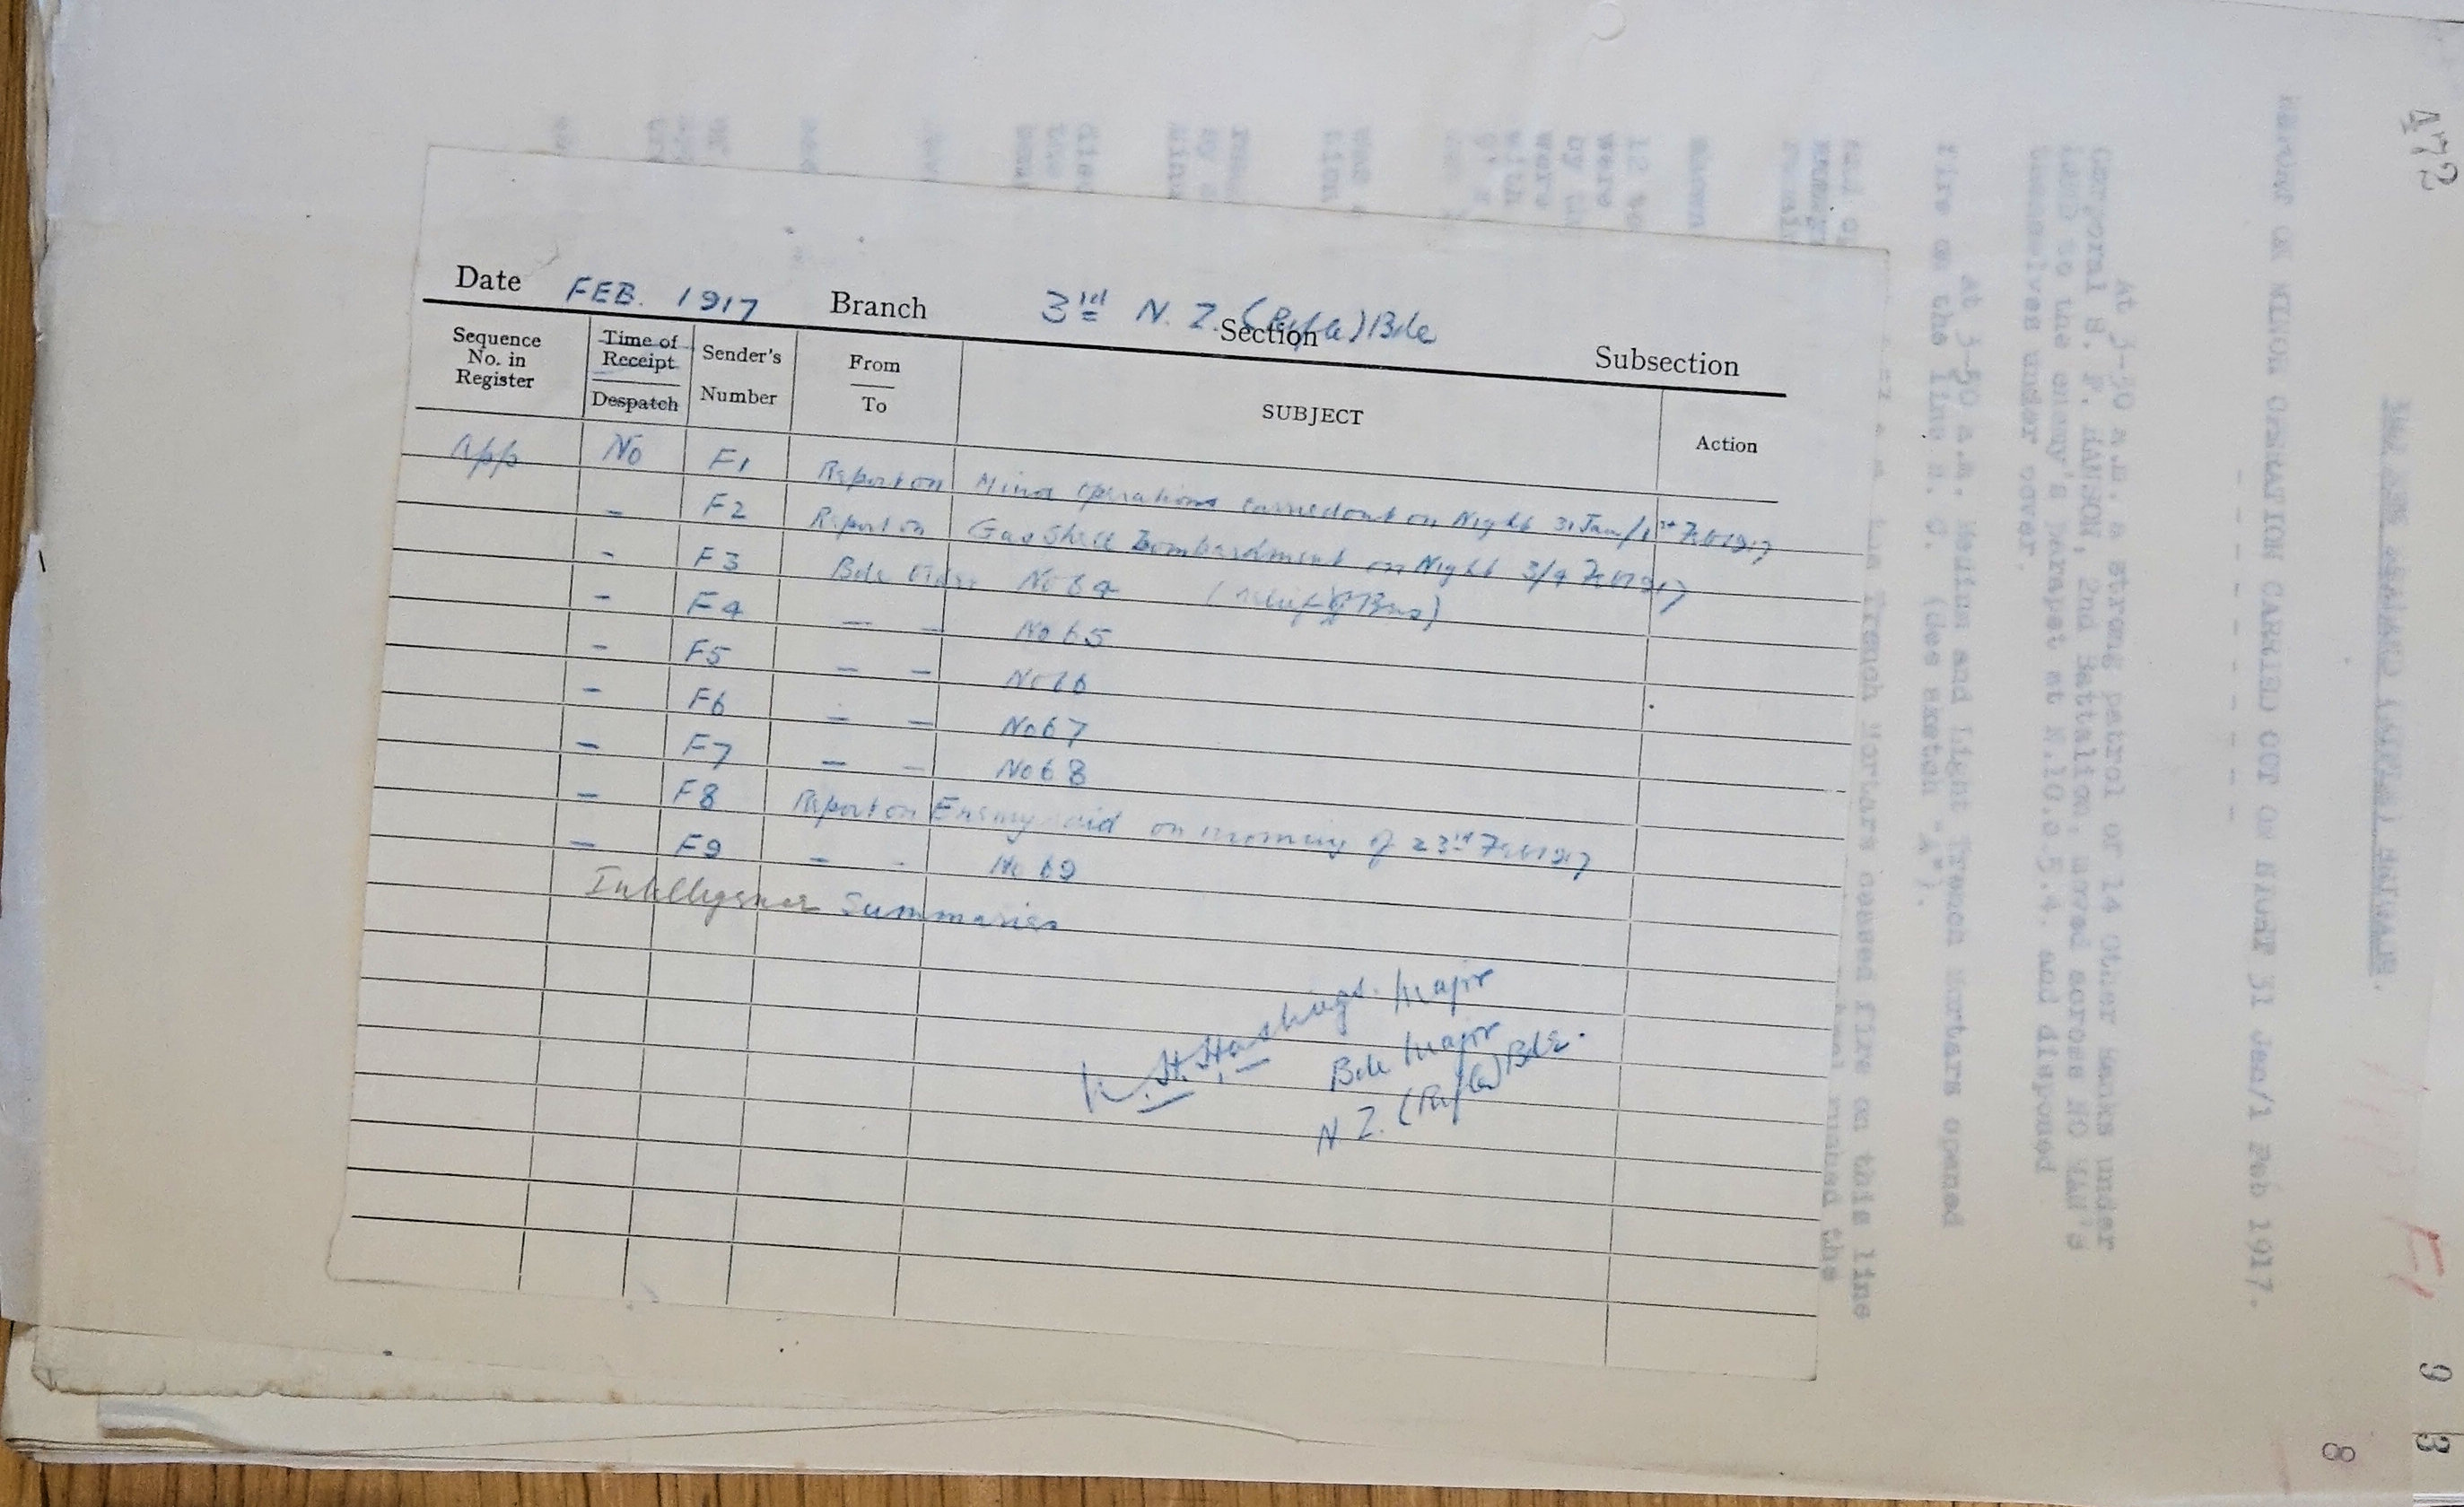 Date FEB. 1917 Branch 3rd N. Z. (Rifle) Bde
Section Subsection
Sequence No. in Register
Time of Receipt
Despatch
Sender's Number
From
To
SUBJECT
Action
App No F1 Report on Minor operations carried out on Night 31 Jan/1st Feb 1917
- F2 Report on Gas Shell Bombardment on Night 3/4 Feb 1917
- F3 Bde Order No 64 (Relief of Bns)
- F4 - - No 65
- F5 - - No 66
- F6 - - No 67
- F7 - - No 68
- F8 Report on Enemy raid on morning of 23rd Feb 1917
- F9 - - No 69
Intelligence Summaries
Hastings. Major
Bde Major
N Z. (Rifle) Bde.
472
REPORT ON MINOR OPERATION CARRIED OUT ON NIGHT 31 Jan/1 Feb 1917.
At 3-30 a.m. a strong patrol of 14 Other Ranks under
2nd Battalion, moved across NO MAN'S
LAND to the enemy's parapet at and disposed
themselves under cover.
At 3-50 a.m. Medium and Light Trench Mortars opened
fire on the line (See sketch "A").
Trench Mortars ceased fire on this line
rushed the
F1
9 3
8